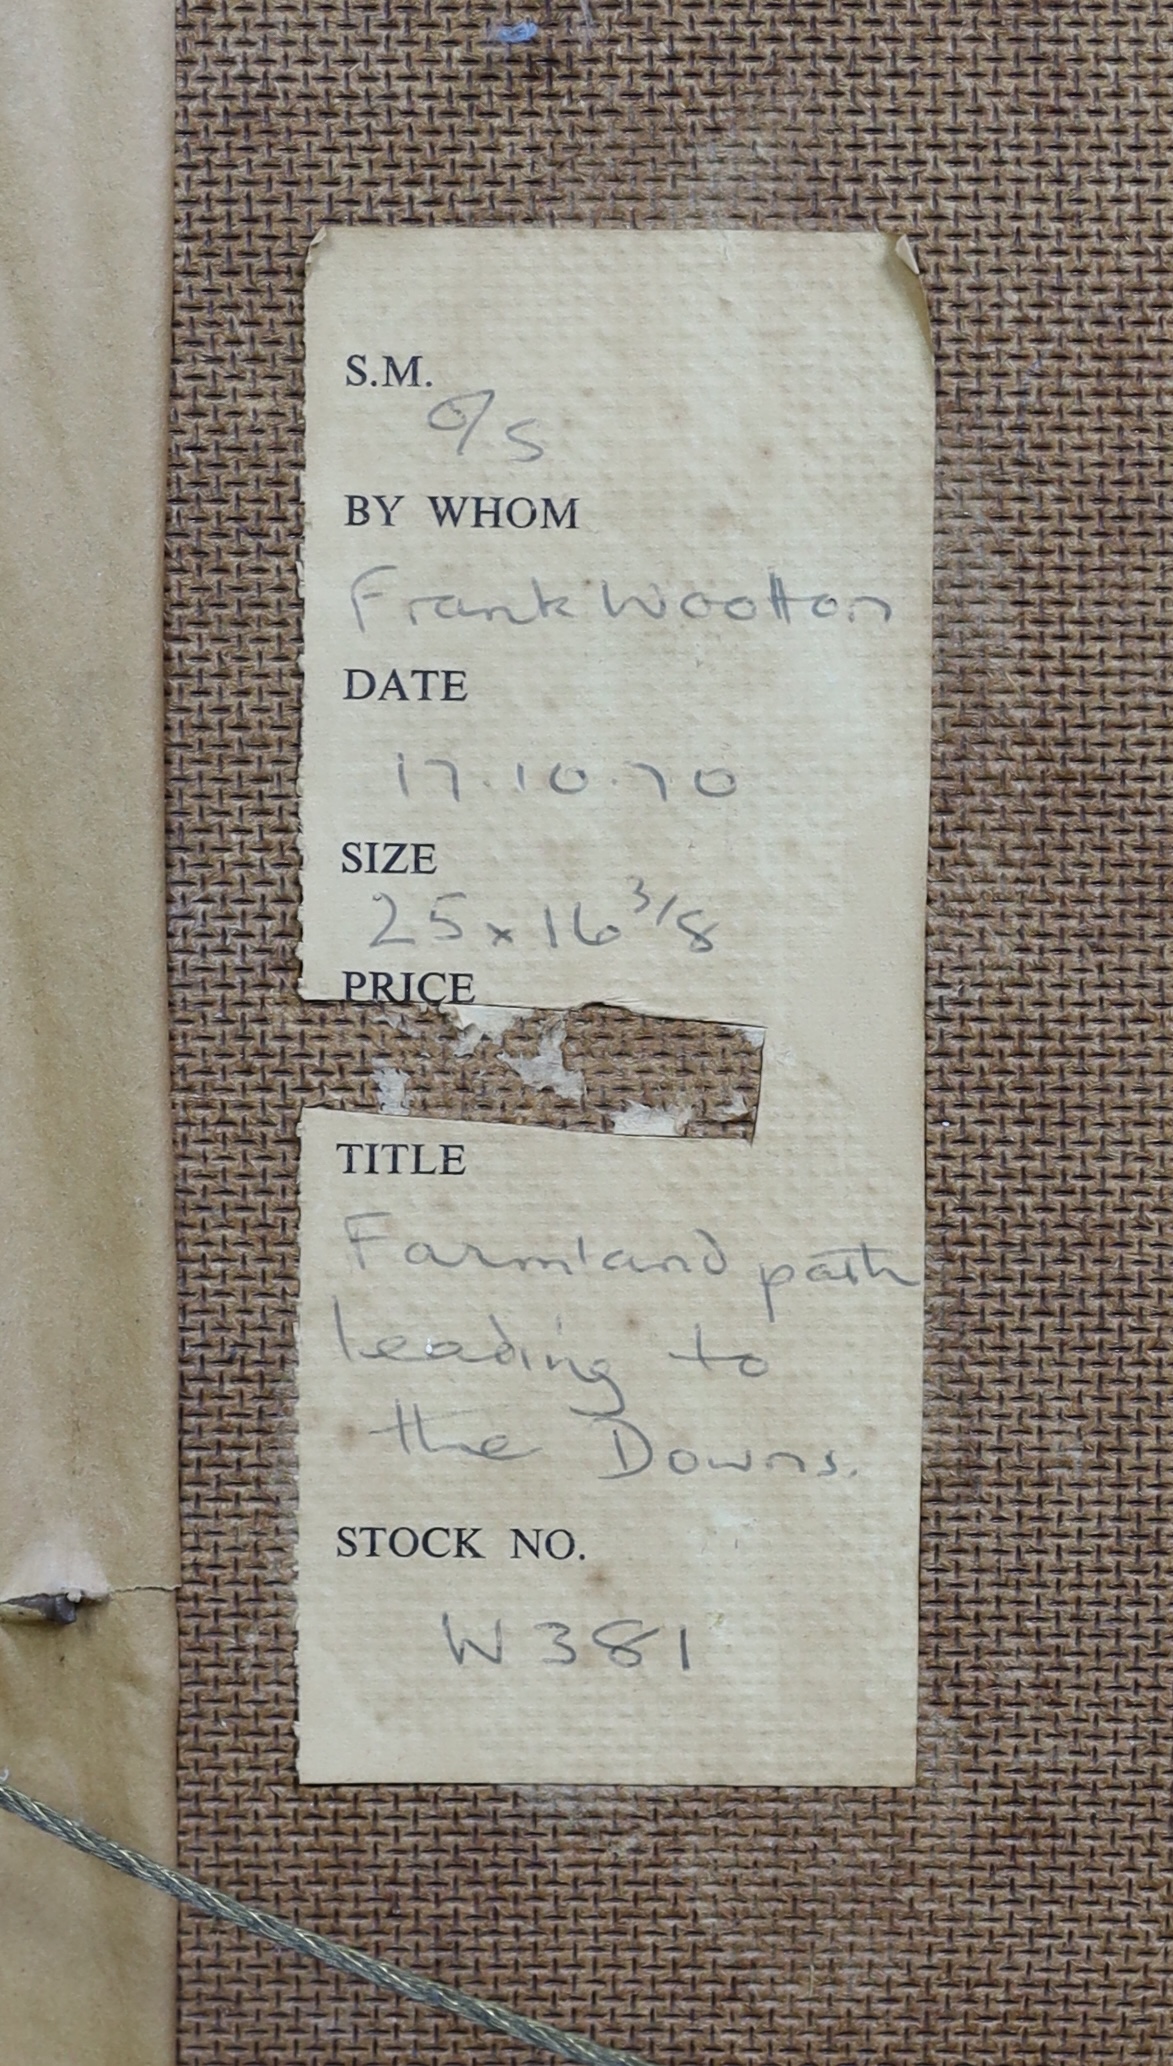 S.M.
O/S
BY WHOM
Frank Wootton
DATE
17.10.70
SIZE
25 x 16 3/8
PRICE
TITLE
Farmland path
leading to
the Downs.
STOCK NO.
W 381